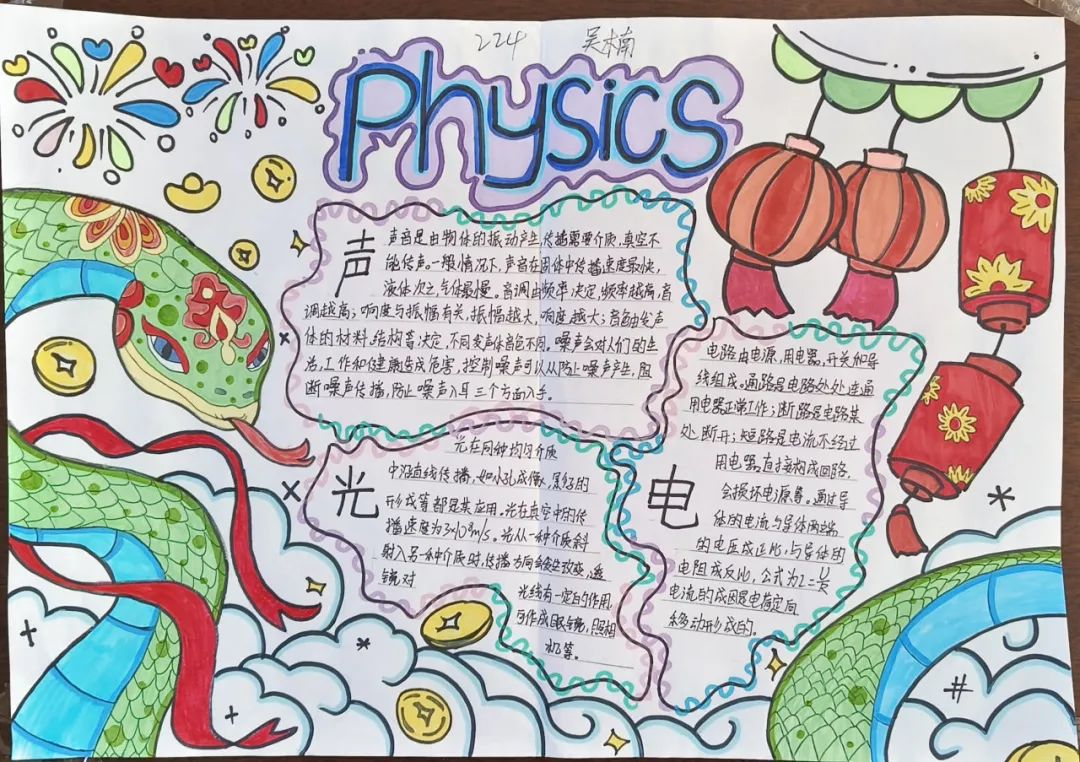 224 吴木南
Physics
声
声音是由物体的振动产生,传播需要介质,真空不
能传声。一般情况下,声音在固体中传播速度最快,
液体次之,气体最慢。音调由频率决定,频率越高,音
调越高;响度与振幅有关,振幅越大,响度越大;音色由发声
体的材料、结构等决定,不同发声体音色不同。噪声会对人们的生
活,工作和健康造成危害,控制噪声可以从防止噪声产生,阻
断噪声传播,防止噪声入耳三个方面入手。
光
光在同种均匀介质
中沿直线传播,如小孔成像、影子的
形成等都是其应用。光在真空中的传
播速度为3×10⁸m/s。光从一种介质斜
射入另一种介质时,传播方向会发生改变,透
镜对
光线有一定的作用,
可作成眼镜,照相
机等。
电
电路由电源、用电器、开关和导
线组成。通路是电路处处连通
用电器正常工作;断路是电路某
处断开;短路是电流不经过
用电器,直接构成回路,
会损坏电源等。通过导
体的电流与导体两端
的电压成正比,与导体的
电阻成反比,公式为I=U/R
电流的成因是电荷定向
移动形成的。